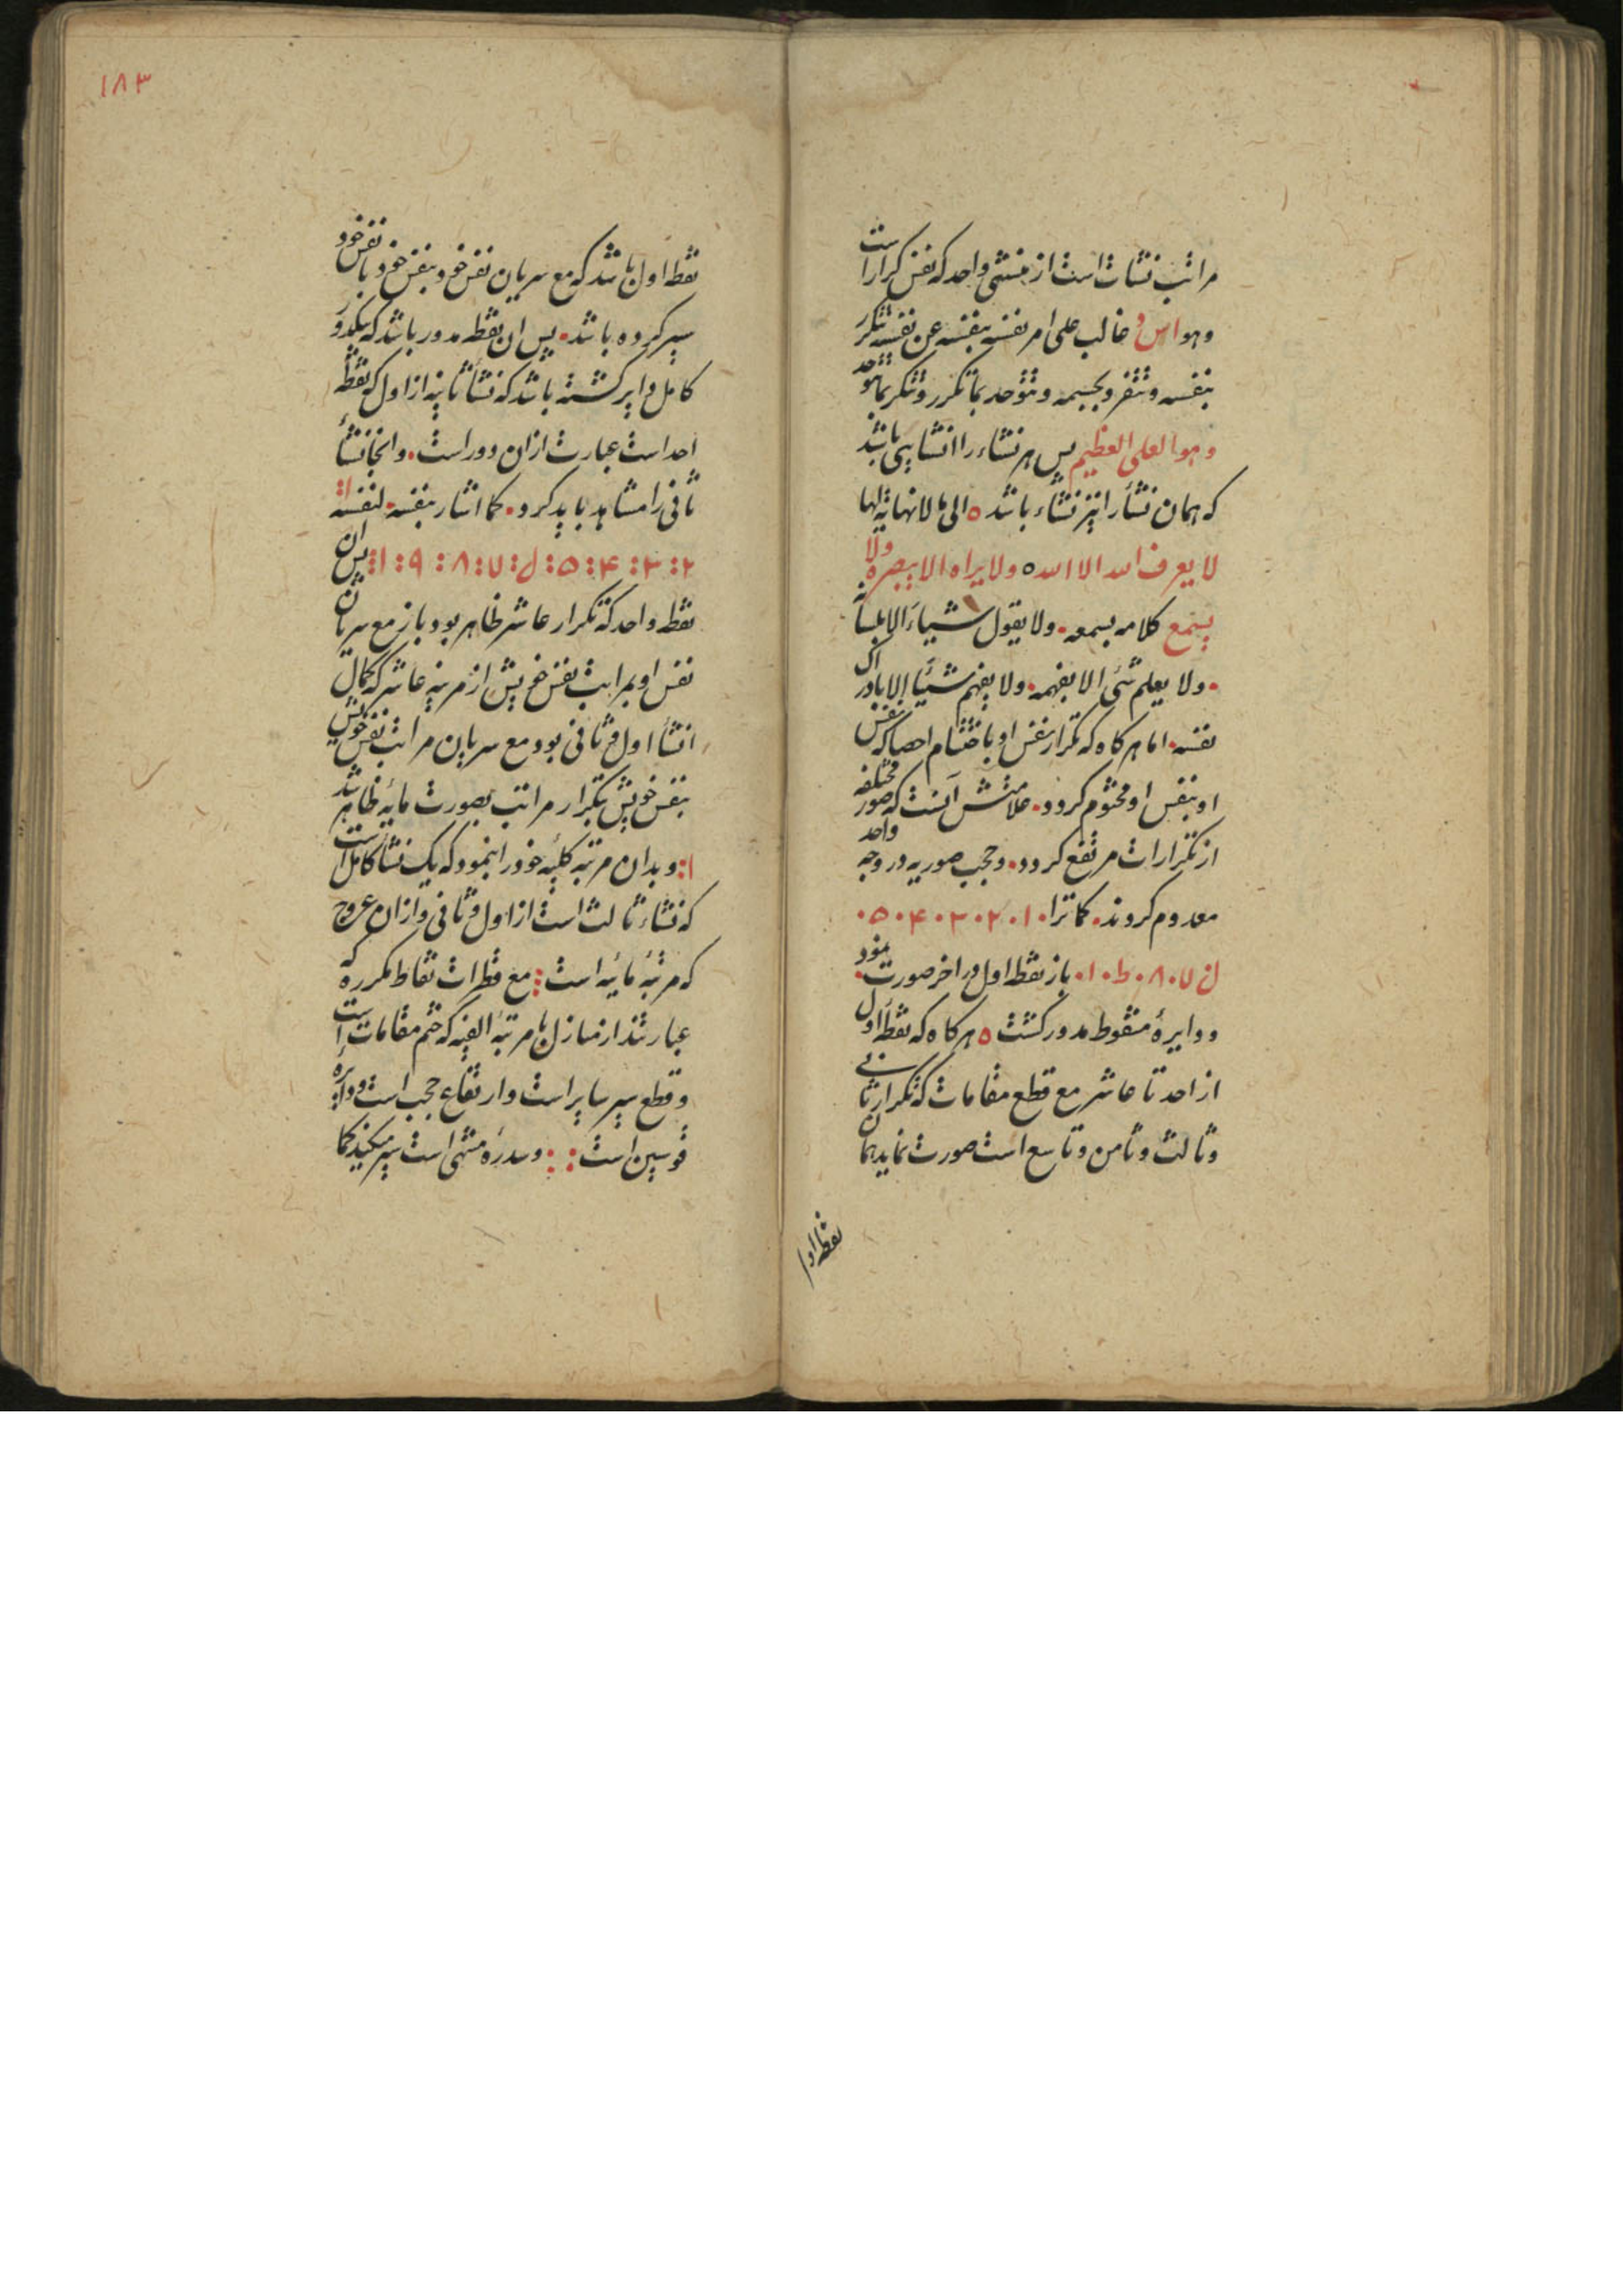 مراتب نشات است از منشی واحد که نفس کرار است
وهو اس و غالب علی امر نفسه بنفسه عن نفسه تتکرر
بنفسه وتتفرد بجسمه وتتوحد بما تکرر وتتکر بما توحد
وهو العلی العظیم پس هر نشاء را انشایی باشد
که همان نشأ را نیز نشاء باشد ه الی ما لانهایة لها
لا یعرف الله الا الله ه ولا یراه الا ببصره ولا
یسمع کلامه بسمعه • ولا یقول شیاء الا بلسانه
• ولا یعلم شئ الا بفهمه • ولا یفهم شیئا الا بادراک
نفسه • اما هر کاه که تکرار نفس او باختتام احصا که نفس
او بنفس او مختوم کردد • علامتش آنست که صور مختلفه
از تکرارات مرتفع کردد • وحجب صوریه در وجه واحد
معدوم کروند • کما ترا • ۱ • ۲ • ۳ • ۴ • ۵ •
۷ • ۸ • ط • ۱ • باز نقطه اول در اخر صورت نمود •
ودایرهٔ منقوط مدور کشت ه هر کاه که نقطه اول
از احد تا عاشر مع قطع مقامات که تکرار ثانی
وثالث وثامن وتاسع است صورت نماید همان
نقطه اول
۱۸۳
نقطه اول باشد که مع سریان نفس خود بنفس خود با نفس خود
سیر کرده باشد • پس ان نقطه مدور باشد که یکدور
کامل دایر کشته باشد که نشأ ثانیه از اول که نقطه
احد است عبارت از ان دور است • وانجا نشأ
ثانی را مشاهد باید کرد • کما اشار بنفسه • لنفسه ۱:
۲: ۳: ۴: ۵: ۷: ۸: ۹: ۱: پس ان
نقطه واحد که تکرار عاشر ظاهر بود باز مع سریان
نفس او بمراتب نفس خویش از مرتبه عاشر که کمال
انشأ اول و ثانی بود مع سریان مراتب نفس خویش
بنفس خویش بتکرار مراتب بصورت مایه ظاهر شد
۱: وبدان مرتبه کلیه خود را بنمود که یک نشأ کامل است
که نشاء ثالث است از اول و ثانی واز ان عروج
که مرتبهٔ مایه است: مع قطرات نقاط مکرره که
عبارتند از منازل با مرتبه الفیه که ختم مقامات است
وقطع سیر سایر است وارتفاع حجب است ودایره
قوسین است: : وسدرهٔ منتهی است سیر میکند کما